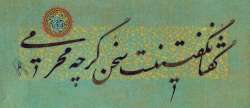 گفتا نگفتنیست سخن گرچه محرمی